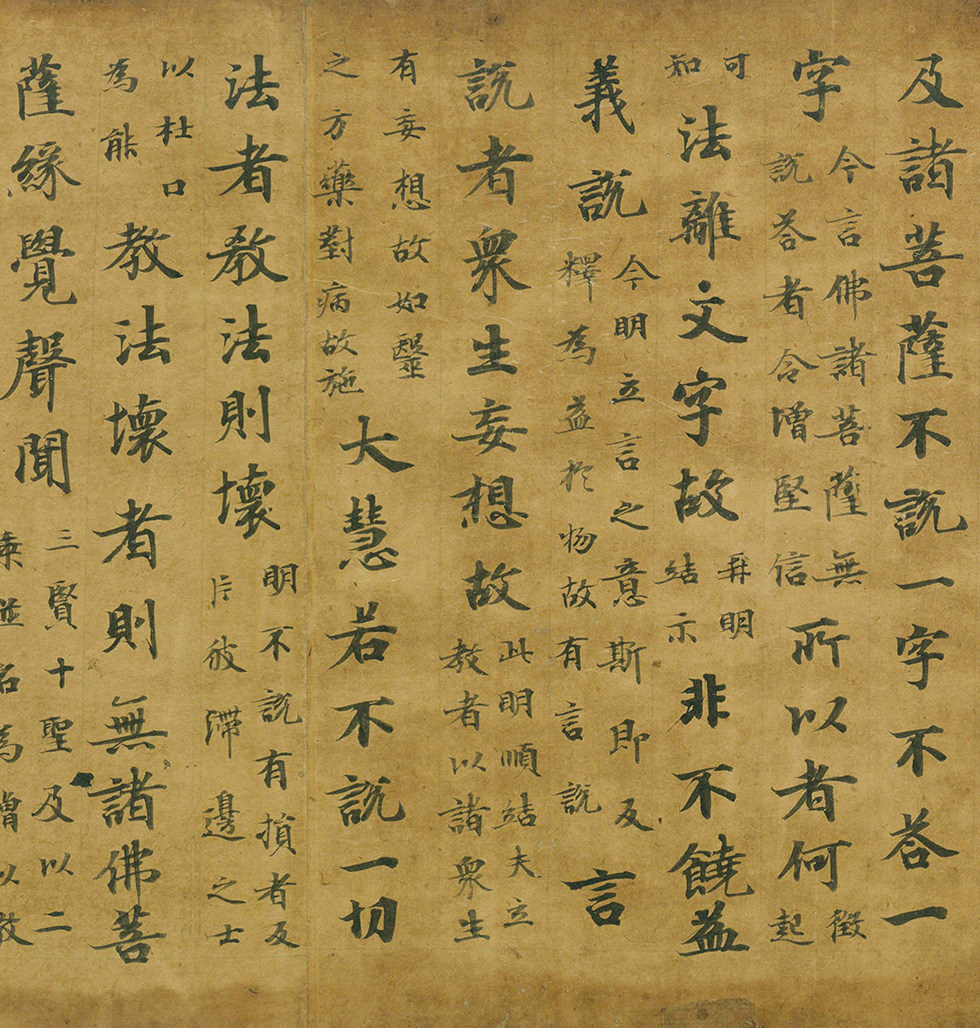 及諸菩薩不說一字不荅一
字今言佛諸菩薩無說荅者令增堅信所以者何徵起
可知法離文字故再明結示非不饒益
義說今明立言之意斯即反釋為益於物故有言說言
說者衆生妄想故此明順結夫立教者以諸衆生
有妄想故如毉之方藥對病故施大慧若不說一切
法者教法則壞明不說有損者反斥彼滯邊之士
以杜口為能教法壞者則無諸佛菩
薩緣覺聲聞三賢十聖及以二乗並名為僧以教